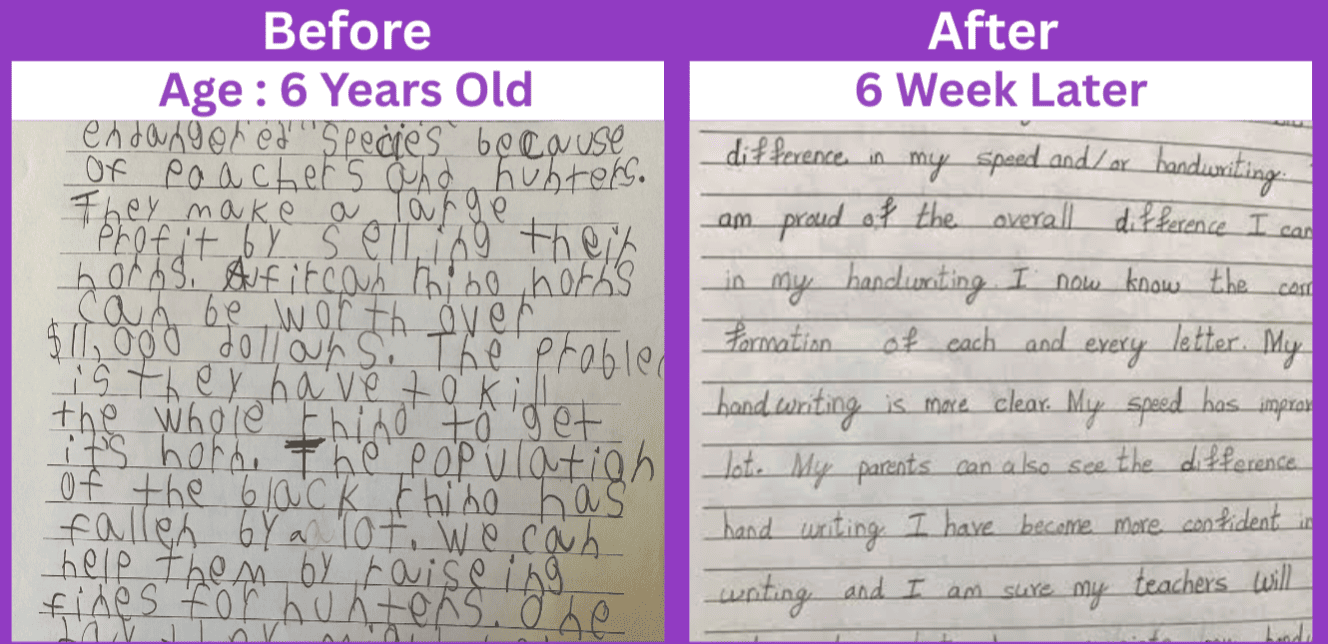 Before
Age : 6 Years Old
endangered" species because
of poachers and hunters.
They make a large
profit by selling their
horns. Africah rhino horns
can be worth over
$11,000 dollars. The proble
is they have to kill
the whole rhino to get
it's horn. The population
of the black rhino has
fallen by a lot. We can
help them by raiseing
fines for hunters. One
After
6 Week Later
difference in my speed and/or handwriting.
am proud of the overall difference I can
in my handwriting. I now know the corr
formation of each and every letter. My
handwriting is more clear. My speed has improv
lot. My parents can also see the difference
hand writing. I have become more confident in
writing and I am sure my teachers will